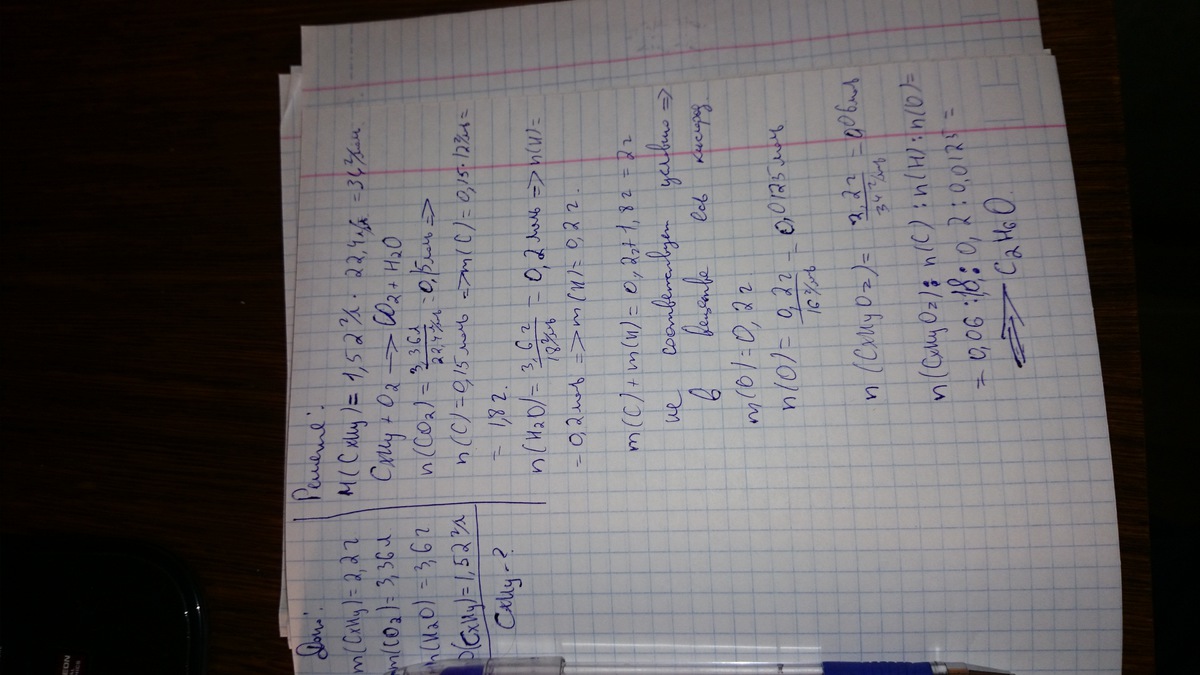 Дано:
m(CxHy)=2,2г
m(CO2)=3,36л
m(H2O)=3,6г
ρ(CxHy)=1,52г/л
CxHy-?
Решение:
M(CxHy)=1,52г/л · 22,4 =34г/моль
CxHy+O2→CO2+H2O
n(CO2)=3,36л/22,4л/моль=0,15моль=>
n(C)=0,15моль=>m(C)=0,15·12г/моль=
=1,8г.
n(H2O)=3,6г/18г/моль=0,2моль=>n(H)=
=0,2моль=>m(H)=0,2г.
m(C)+m(H)=0,2г+1,8г=2г
не соответствует условию=>
в веществе есть кислород
m(O)=0,2г.
n(O)=0,2г/16г/моль=0,0125моль
n(CxHyOz)=2,2г/34г/моль=0,06моль
n(CxHyOz):n(C):n(H):n(O)=
=0,06: :0,2:0,0125=
=>C2H6O